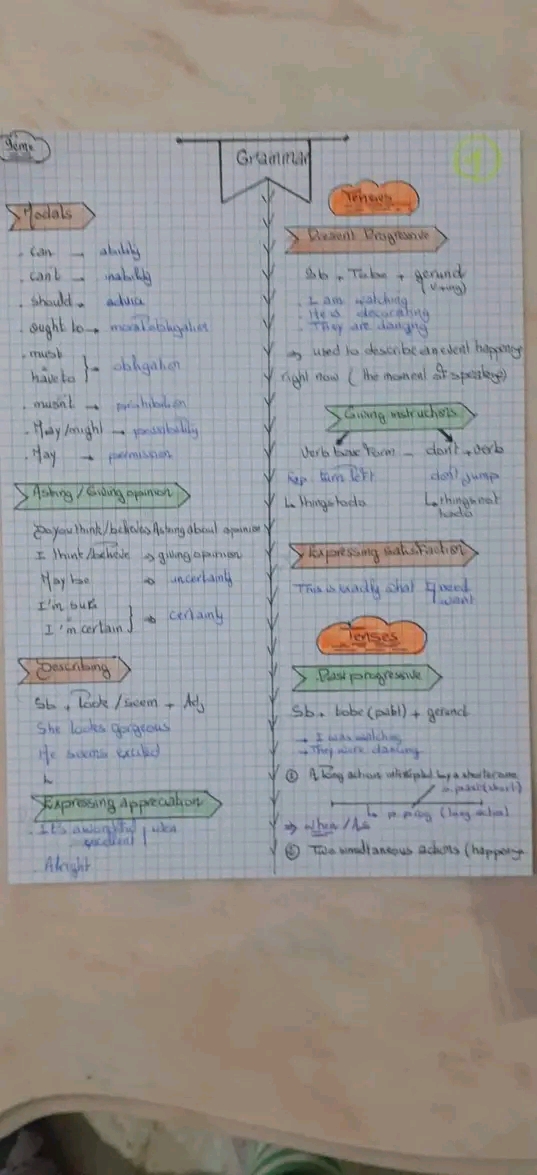 9ème
Grammar
1
Modals
. can → ability
. can't → inability
. should → advice
. ought to → moral obligation
. must
have to } → obligation
. musn't → prohibition
. May/might → possibility
. May → permission
Asking / Giving opinion
Do you think/believe → Asking about opinion
I think/believe → giving opinion
May be → uncertainty
I'm sure
I'm certain } → certainty
Describing
Sb + look / seem + Adj
She looks gorgeous
He seems excited
Expressing appreciation
. It's a idea
excellent
. Alright
Tenses
Present Progressive
Sb + To be + gerund
(V+ing)
. I am watching
. He is decorating
. They are dancing
⇒ used to describe an event happening
right now ( the moment of speaking)
Giving instructions
Verb base form – don't + verb
turn left don't jump
↳ things to do ↳ things not
to do
Expressing satisfaction
This is exactly what I need
want
Tenses
Past progressive
Sb + to be (past) + gerund
→ I was watching
→ They were dancing
① A long action by a shorter one
p. past (short)
↳ p. prog (long action)
⇒ when / As
② Two simultaneous actions (happening